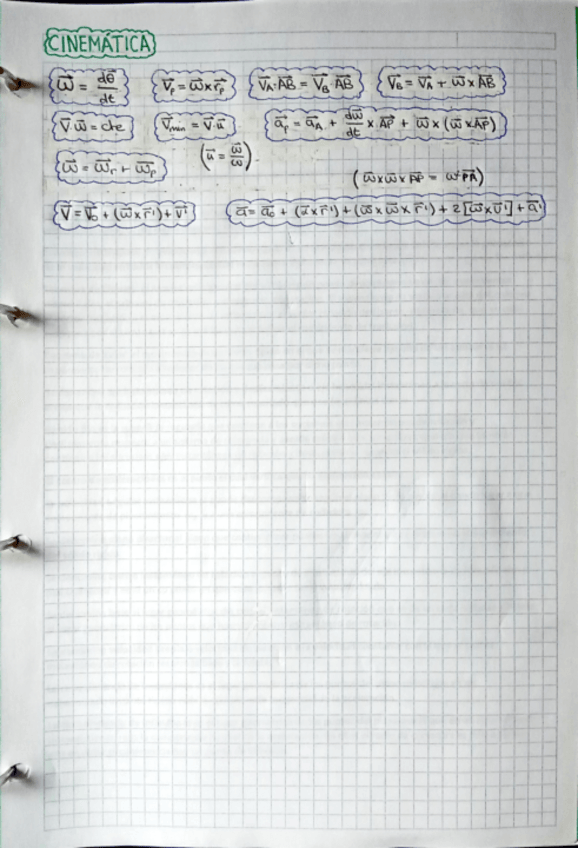 CINEMÁTICA
ω⃗ = dθ⃗/dt   V⃗p = ω⃗ x r⃗p   V⃗A · AB⃗ = V⃗B · AB⃗   V⃗B = V⃗A + ω⃗ x AB⃗
V⃗ · ω⃗ = cte   V⃗min = V⃗ · u⃗   a⃗p = a⃗A + dω⃗/dt x AP⃗ + ω⃗ x (ω⃗ x AP⃗)
(u⃗ = ω⃗/ω)
ω⃗ = ω⃗r + ω⃗p
(ω⃗ x ω⃗ x AP⃗ = ω² PA⃗)
V⃗ = V⃗o + (ω⃗ x r⃗') + v⃗'   a⃗ = a⃗o + (α⃗ x r⃗') + (ω⃗ x ω⃗ x r⃗') + 2[ω⃗ x v⃗'] + a⃗'